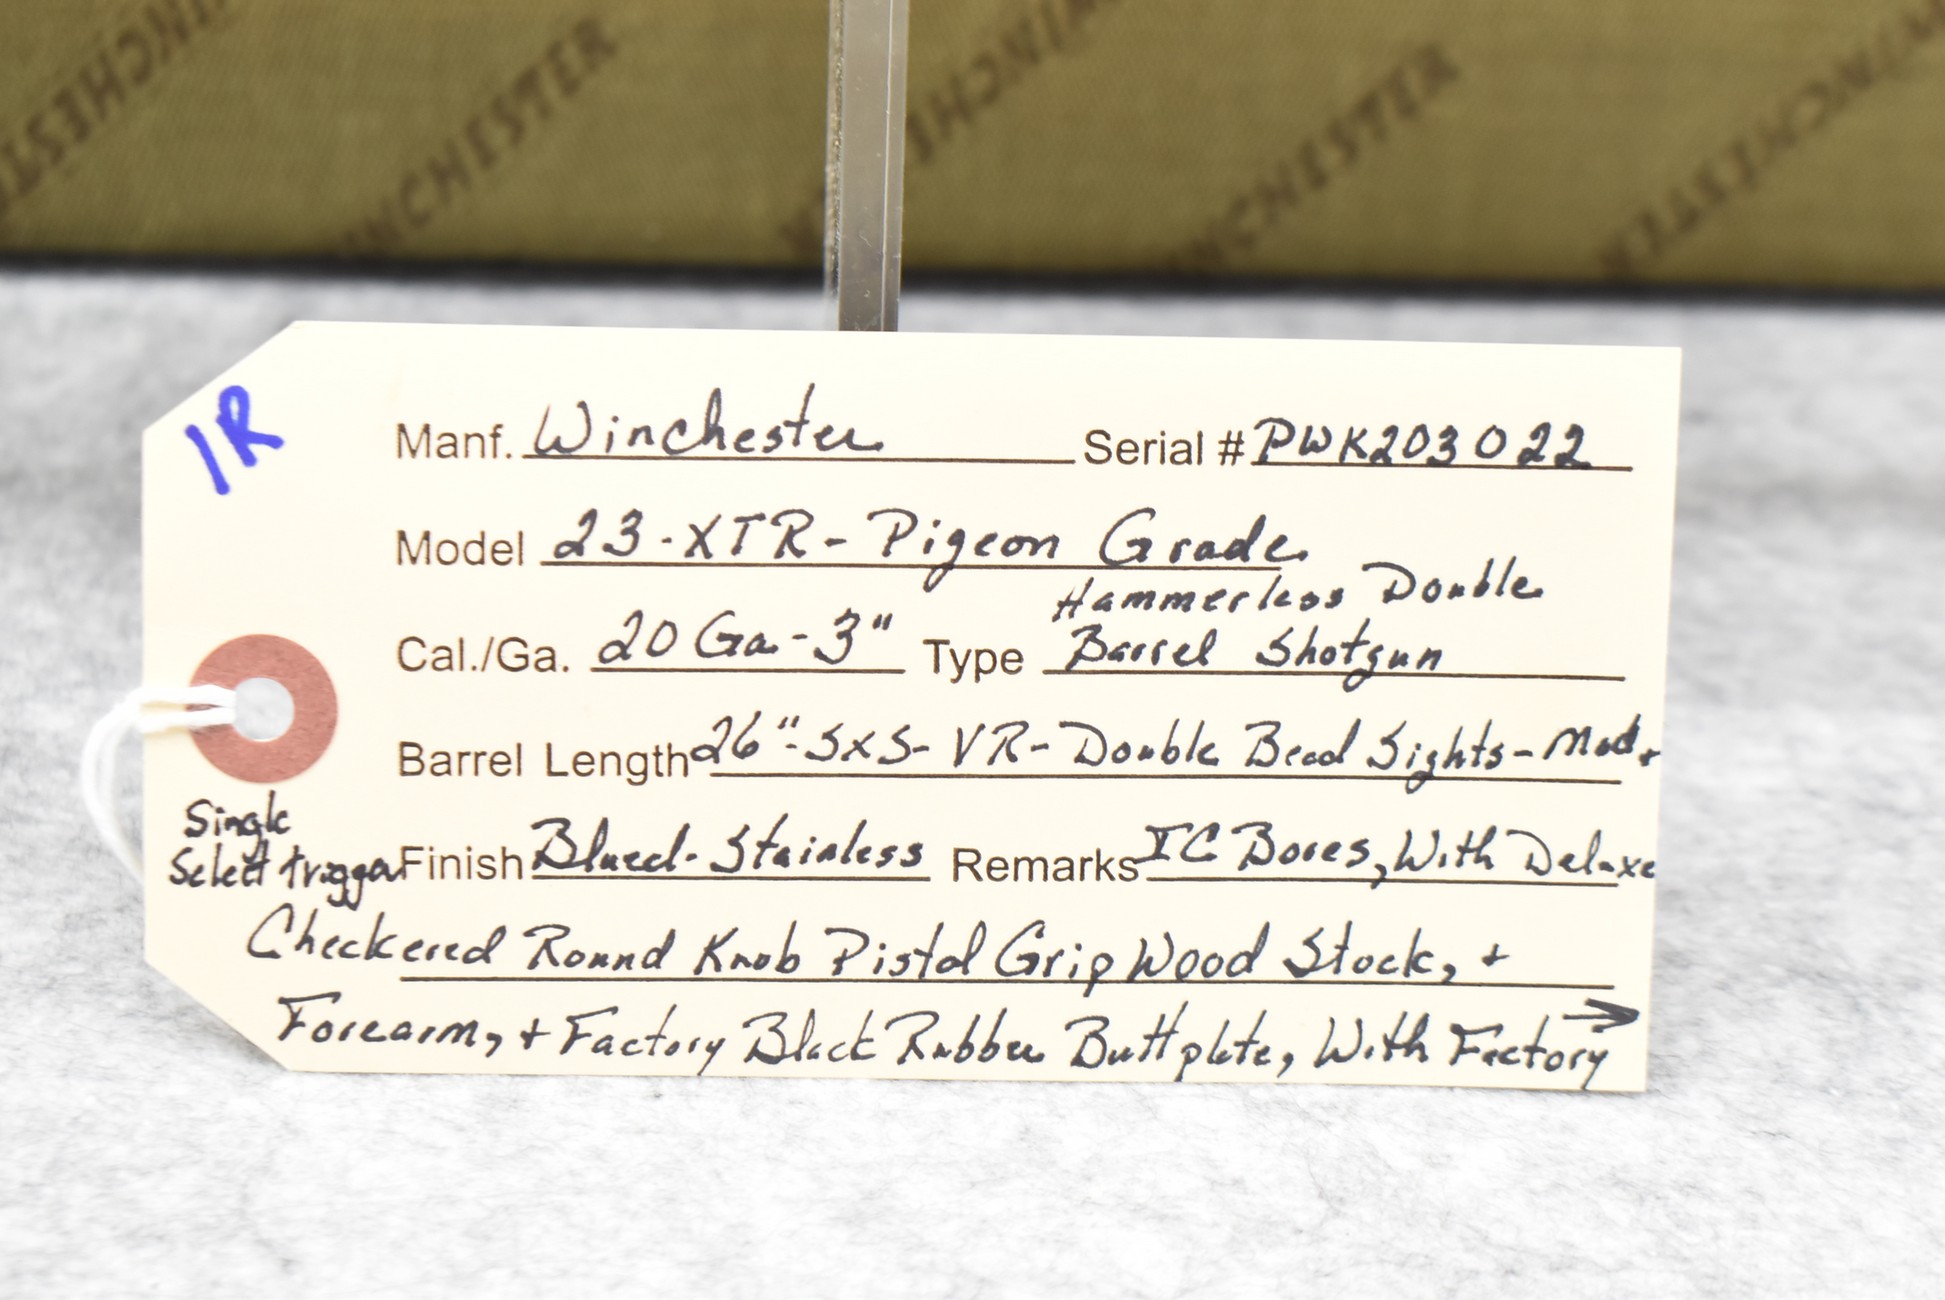 WINCHESTER
WINCHESTER
1R
Manf. Winchester Serial # PWK203022
Model 23-XTR- Pigeon Grade
Hammerless Double
Cal./Ga. 20 Ga.-3" Type Barrel Shotgun
Barrel Length 26"-SXS- VR- Double Bead Sights- Mod. +
Single
Select trigger Finish Blued-Stainless Remarks IC Bores, With Deluxe
Checkered Round Knob Pistol Grip Wood Stock, +
Forearm, + Factory Black Rubber Buttplate, With Factory →